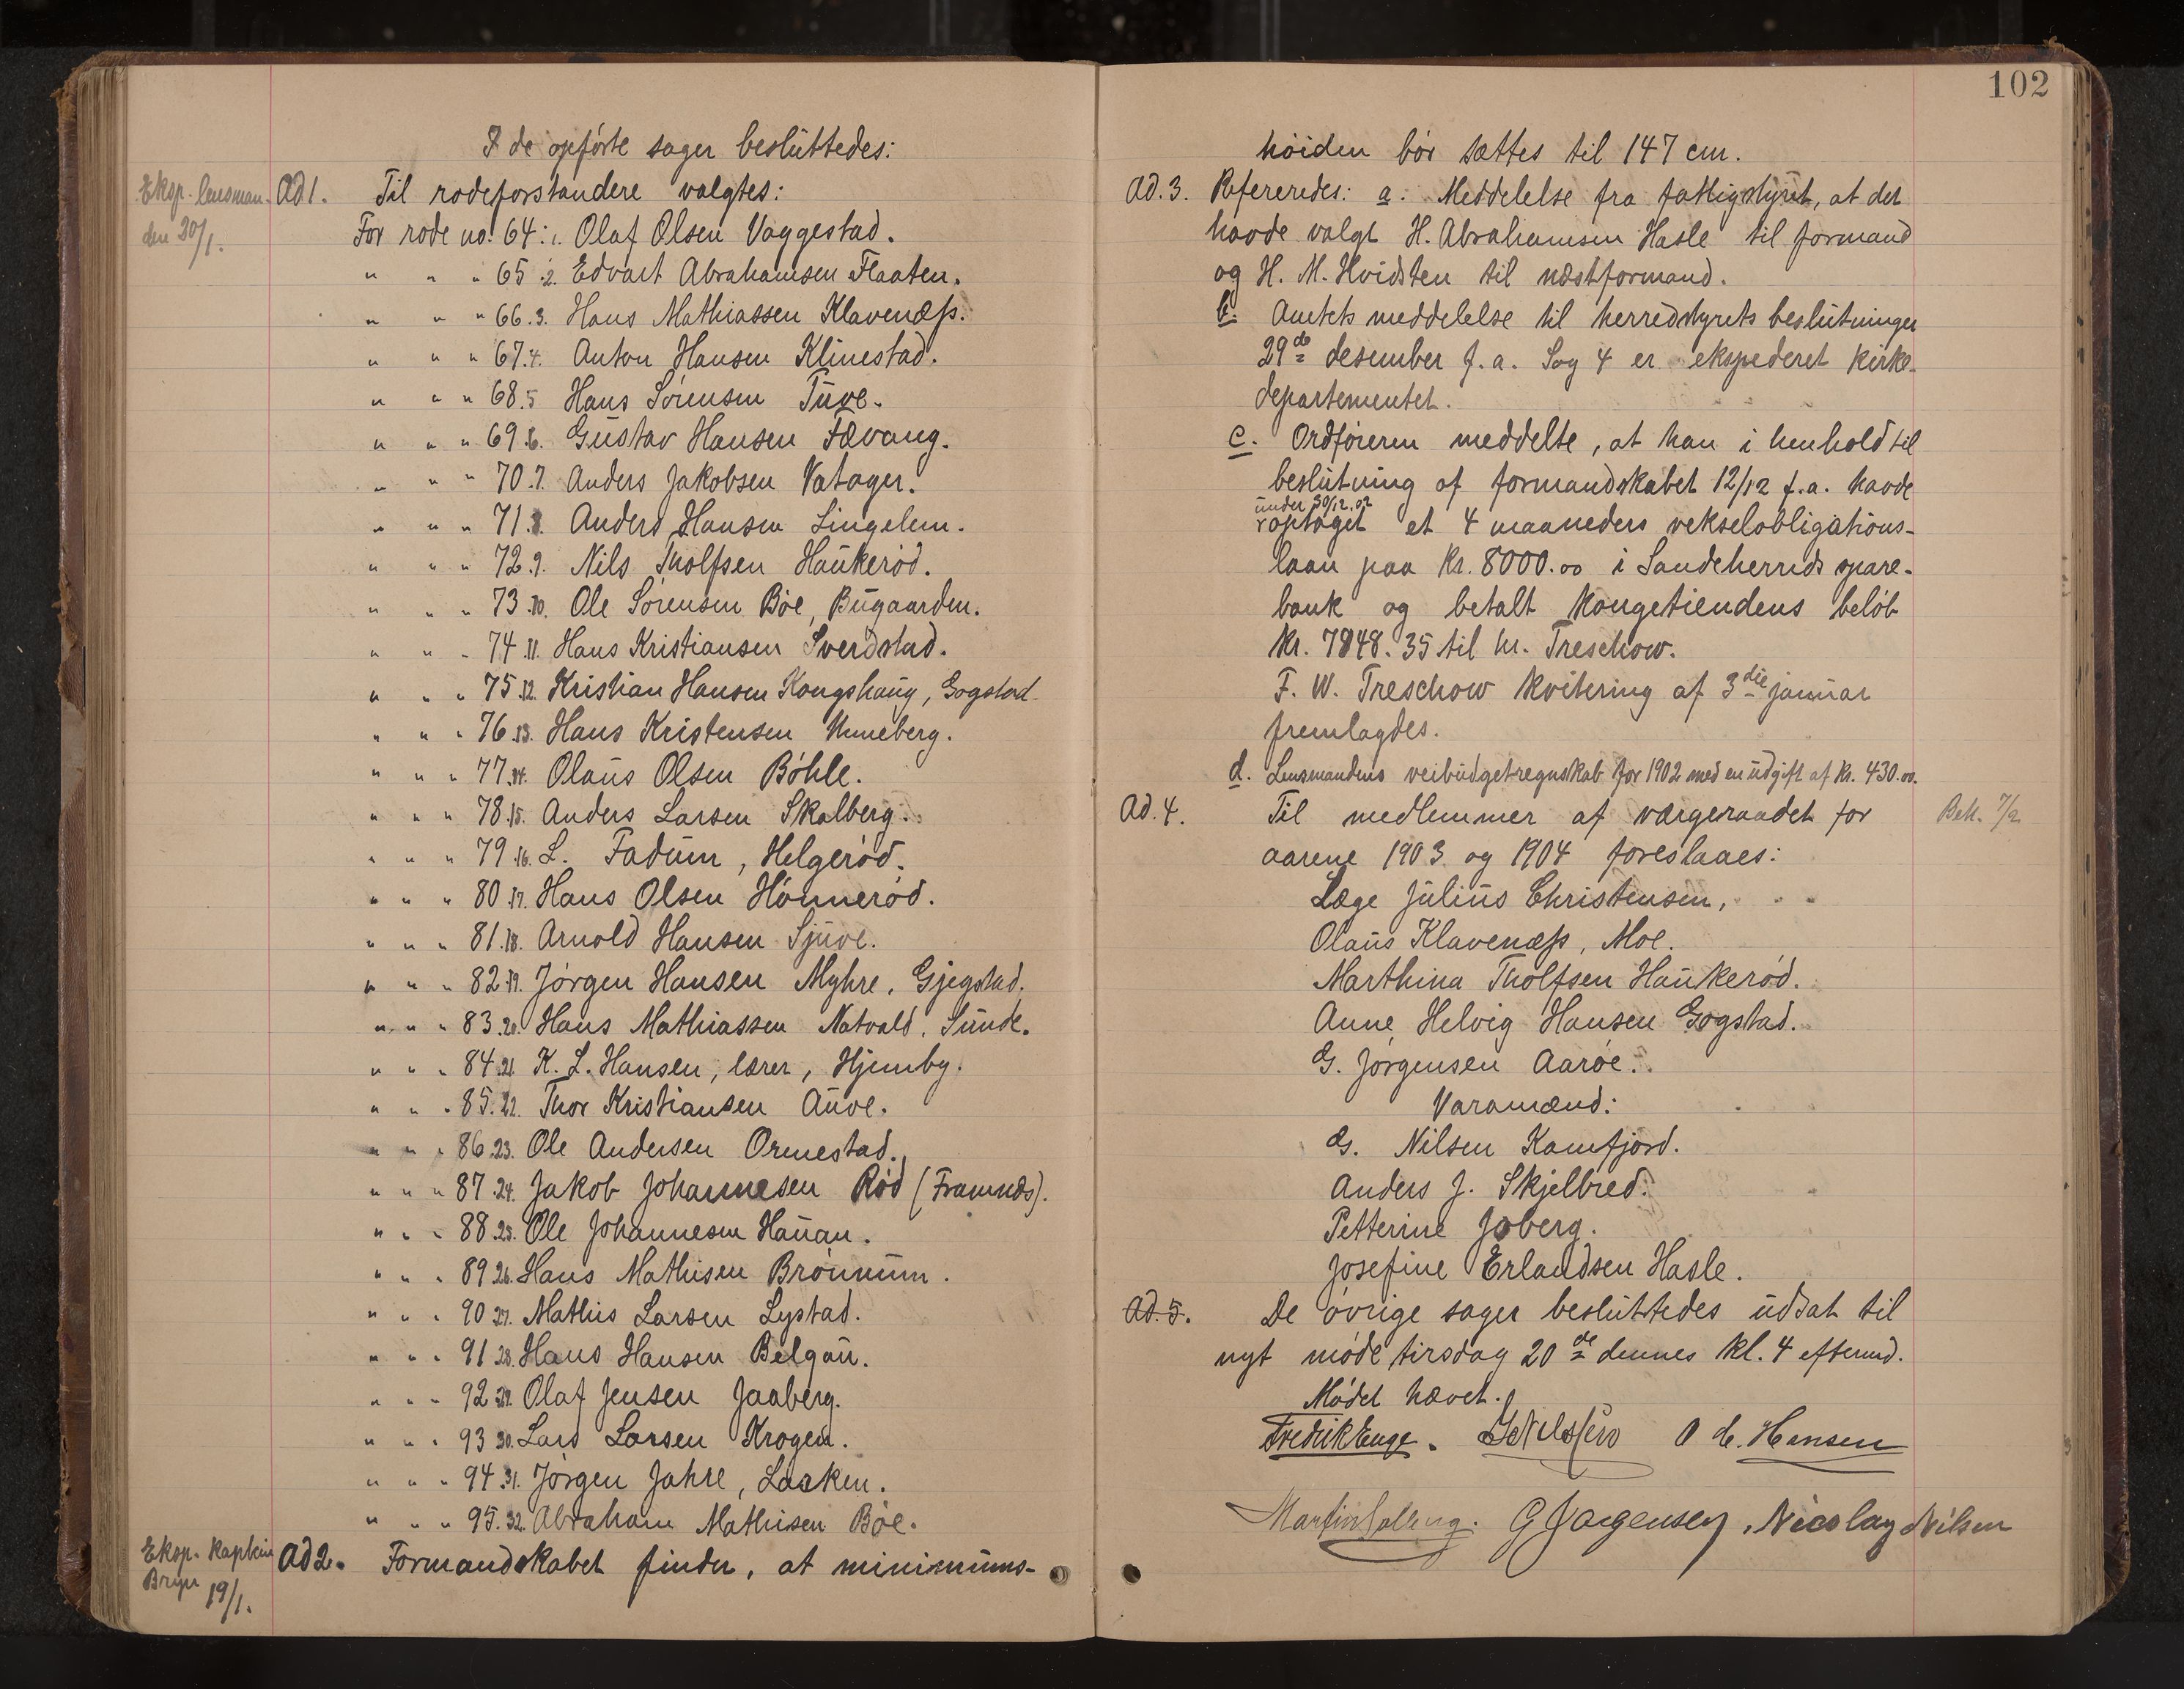 I de opførte sager besluttedes:
Eksp. lensman-
den 30/1.
Ad 1. Til rodeforstandere valgtes:
For rode no. 64: 1. Olaf Olsen Vaggestad.
" " " 65 .2. Edvart Abrahamsen Flaaten.
" " " 66.3. Hans Mathiassen Klavenæss.
" " " 67.4. Anton Hansen Klinestad.
" " " 68.5 Hans Sørensen Tuve.
" " " 69.6. Gustav Hansen Fævang.
" " " 70.7. Anders Jakobsen Vatager.
" " " 71.8. Anders Hansen Lingelem.
" " " 72.9. Nils Tholfsen Haukerød.
" " " 73.10. Ole Sørensen Bøe, Bugaarden.
" " " 74.11. Hans Kristiansen Sverdstad.
" " " 75.12. Kristian Hansen Kongshaug, Gogstad
" " " 76.13. Hans Kristensen Unneberg.
" " " 77.14. Olaus Olsen Bøhle.
" " " 78.15. Anders Larsen Skalberg.
" " " 79.16. L. Fadum, Helgerød.
" " " 80.17. Hans Olsen Hønnerød.
" " " 81.18. Arnold Hansen Sjuve.
" " " 82.19. Jørgen Hansen Myhre, Gjegstad.
" " " 83.20. Hans Mathiassen Natvald, Sunde.
" " " 84.21. K. L. Hansen, lærer, Hjemby.
" " " 85.22. Thor Kristiansen Auve.
" " " 86.23. Ole Andersen Ormestad.
" " " 87.24. Jakob Johannesen Rød (Framnæs).
" " " 88.25. Ole Johannesen Hauan.
" " " 89 26. Hans Mathisen Brønnum.
" " " 90 27. Mathis Larsen Lystad.
" " " 91 28. Hans Hansen Belgau.
" " " 92 29. Olaf Jensen Jaaberg.
" " " 93 30. Lars Larsen Krogen.
" " " 94.31. Jørgen Jahre, Lasken.
" " " 95.32. Abraham Mathisen Bøe.
Eksp. kaptein
Bryn 19/1.
Ad 2. Formandskabet finder, at minimums-
102
høiden bør sættes til 147 cm.
Ad. 3. Refereredes: a. Meddelelse fra fattigstyret, at det
havde valgt H. Abrahamsen Hasle til formand
og H. M. Hvidsten til næstformand.
b. Amtets meddelelse til herredstyrets beslutninger
29de desember f.a. Sag 4 er ekspederet kirke-
departementet.
c. Ordføreren meddelte, at han i henhold til
beslutning af formandskabet 12/12 f.a. havde
under 30/12.02
v optaget et 4 maaneders vekselobligations-
laan paa kr. 8000.00 i Sandeherreds spare-
bank og betalt kongetiendens beløb
kr. 7848.35 til hr. Treschow.
F. W. Treschow kvitering af 3die januar
fremlagdes.
d. Lensmandens veibudgetregnskab for 1902 med en udgift af kr. 430.00.
Ad. 4. Til medlemmer af værgeraadet for
Bek. 7/2
aarene 1903 og 1904 foreslaaes:
Læge Julius Christensen,
Olaus Klavenæss, Moe.
Marthina Tholfsen Haukerød.
Anne Helvig Hansen Gogstad.
G. Jørgensen Aarøe.
Varamænd:
G. Nilsen Kamfjord.
Anders J. Skjelbred.
Petterine Joberg.
Josefine Erlandsen Hasle.
Ad. 5. De øvrige sager besluttedes udsat til
nyt møde tirsdag 20de dennes kl. 4 eftermd.
Mødet hævet.
Fredrik Enge. Hansen
G Jørgensen, Nicolay Nilsen